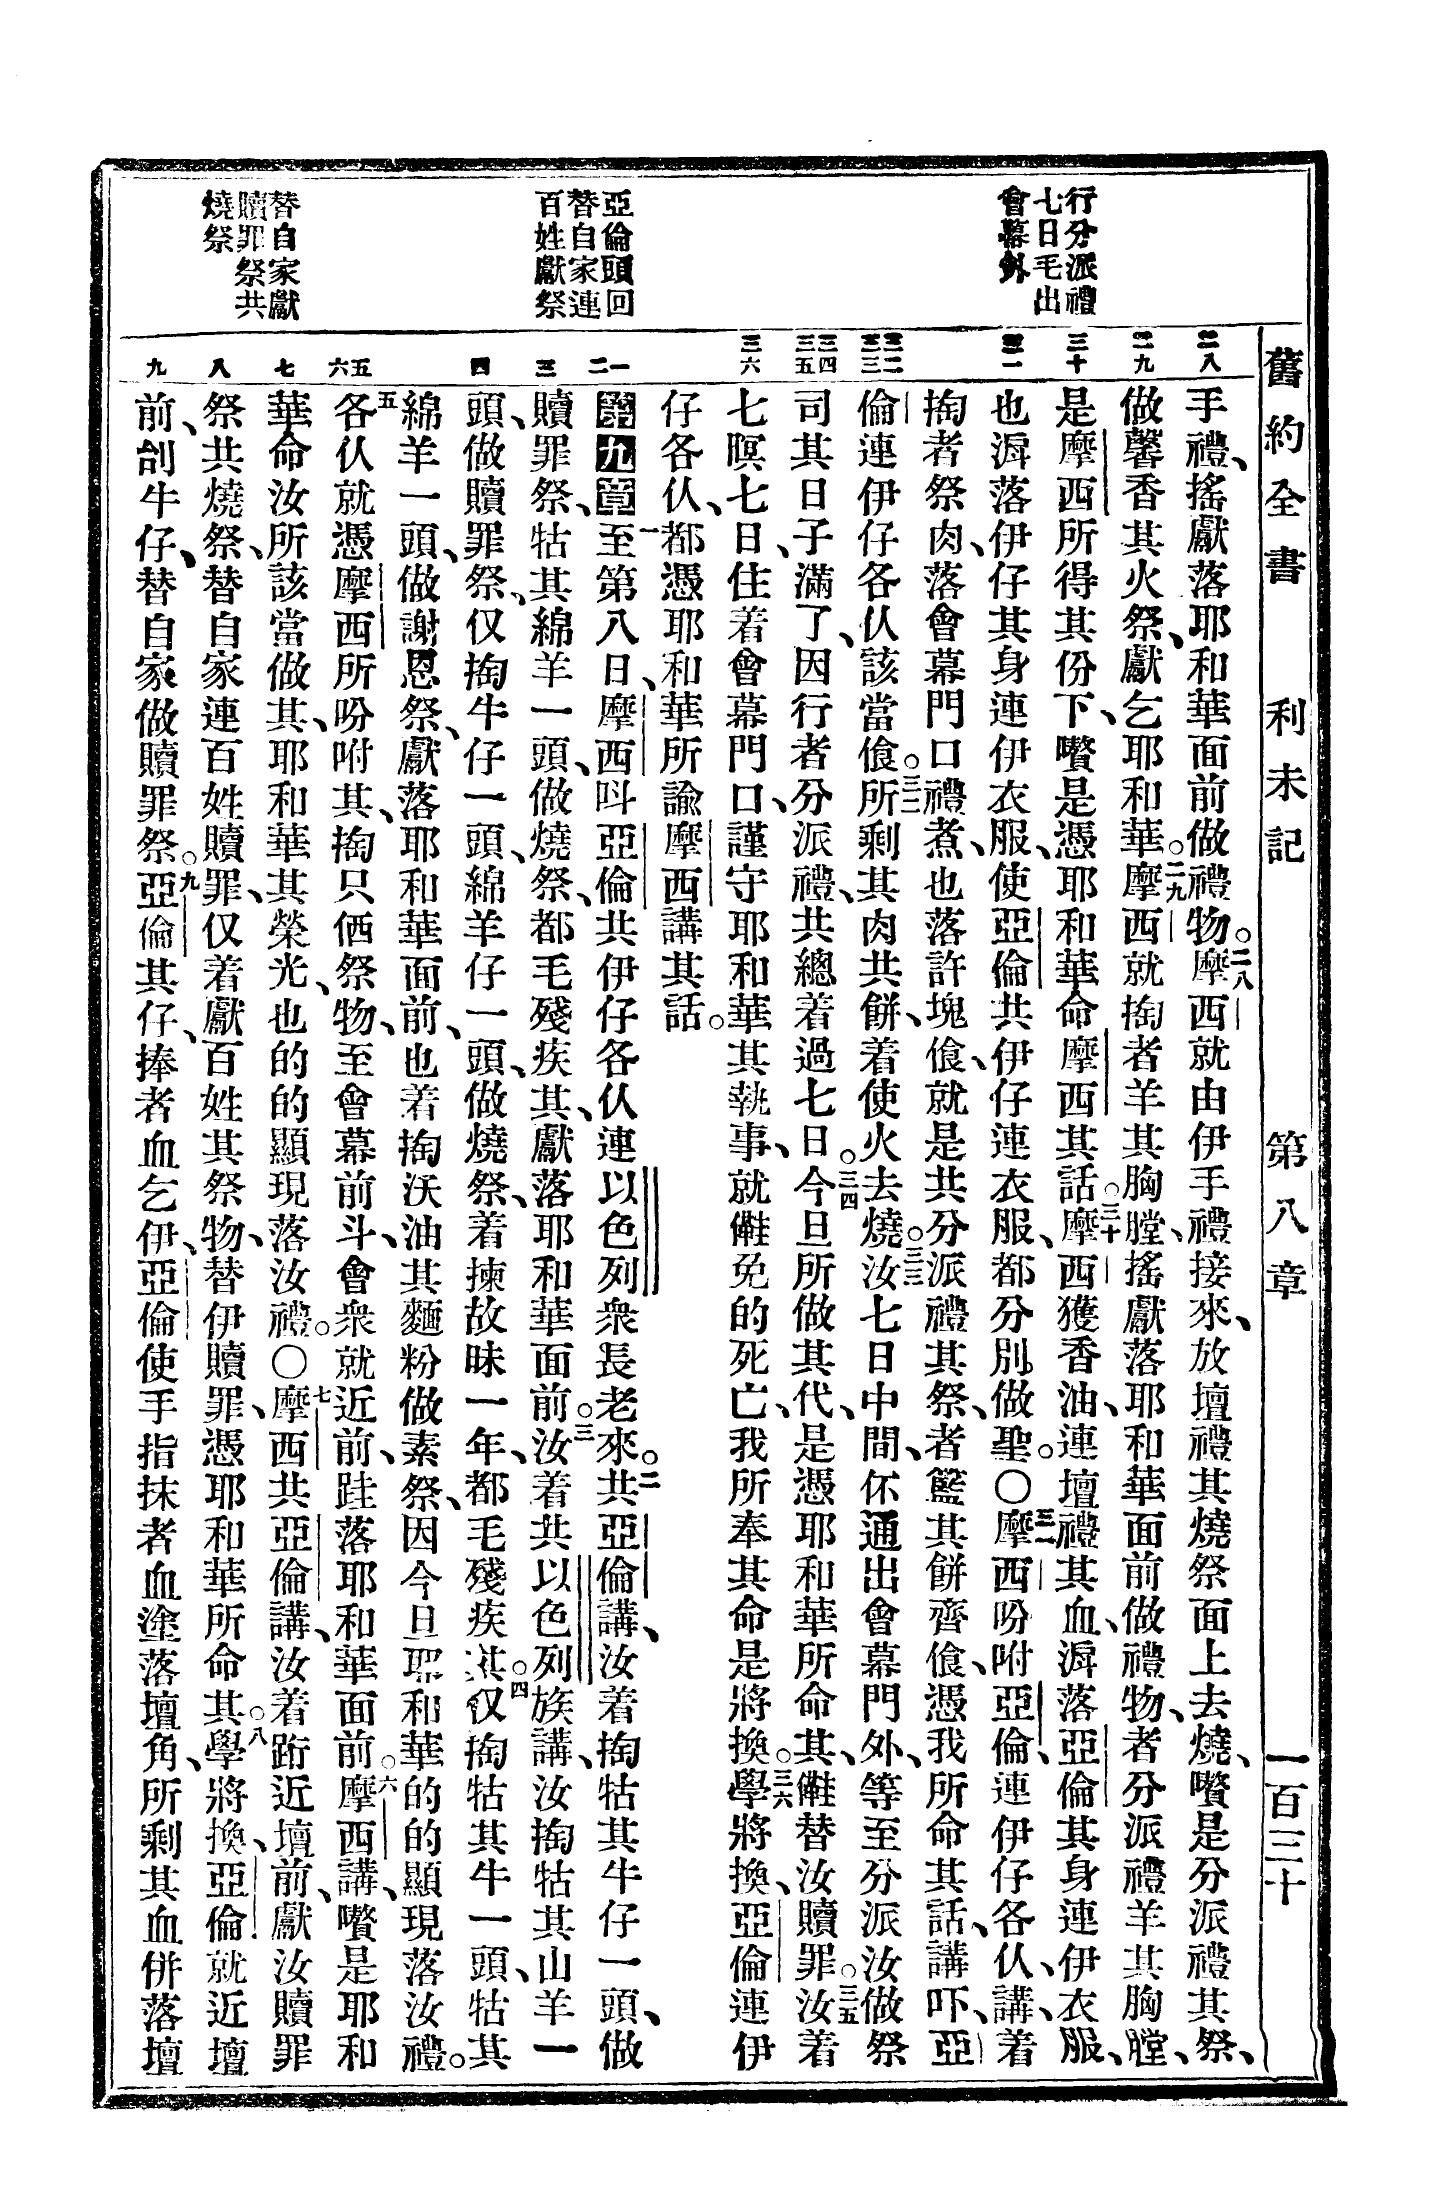 舊約全書　利未記　第八章　一百三十
行分派禮
七日毛出
會幕外
亞倫頭回
替自家連
百姓獻祭
替自家獻
贖罪祭共
燒祭
二八
二九
三十
三一
三二
三三
三四
三五
三六
一
二
三
四
五
六
七
八
九
手禮、搖獻落耶和華面前做禮物。二八摩西就由伊手禮接來、放壇禮其燒祭面上去燒、嚽是分派禮其祭、
做馨香其火祭、獻乞耶和華。二九摩西就掏者羊其胸膛、搖獻落耶和華面前做禮物、者分派禮羊其胸膛、
是摩西所得其份下、嚽是憑耶和華命摩西其話。三十摩西獲香油、連壇禮其血、潷落亞倫其身連伊衣服、
也潷落伊仔其身連伊衣服、使亞倫共伊仔連衣服、都分別做聖。〇三一摩西吩咐亞倫、連伊仔各仈、講、着
掏者祭肉、落會幕門口禮煮、也落許塊飡、就是共分派禮其祭、者籃其餅齊飡、憑我所命其話、講吓、亞
倫連伊仔各仈該當飡。三二所剩其肉共餅、着使火去燒。三三汝七日中間、伓通出會幕門外、等至分派汝做祭
司其日子滿了、因行者分派禮、共總着過七日。三四今旦所做其代、是憑耶和華所命其、㒕替汝贖罪。三五汝着
七暝七日、住着會幕門口、謹守耶和華其執事、就㒕免的死亡、我所奉其命是將換。三六學將換、亞倫連伊
仔各仈、都憑耶和華所諭摩西講其話。
第九章　一至第八日、摩西呌亞倫共伊仔各仈連以色列衆長老來。二共亞倫講、汝着掏牯其牛仔一頭、做
贖罪祭、牯其綿羊一頭、做燒祭、都毛殘疾其、獻落耶和華面前。三汝着共以色列族講、汝掏牯其山羊一
頭、做贖罪祭、仅掏牛仔一頭、綿羊仔一頭、做燒祭、着揀故昧一年、都毛殘疾其。四仅掏牯其牛一頭、牯其
綿羊一頭、做謝恩祭、獻落耶和華面前、也着掏沃油其麵粉做素祭、因今旦耶和華的的顯現落汝禮。
五各仈就憑摩西所吩咐其、掏只㐽祭物、至會幕前斗、會衆就近前、跬落耶和華面前。六摩西講、嚽是耶和
華命汝所該當做其、耶和華其榮光、也的的顯現落汝禮。〇七摩西共亞倫講、汝着跕近壇前、獻汝贖罪
祭共燒祭、替自家連百姓贖罪、仅着獻百姓其祭物、替伊贖罪、憑耶和華所命其。八學將換、亞倫就近壇
前、刣牛仔、替自家做贖罪祭。九亞倫其仔、捧者血乞伊、亞倫使手指抹者血塗落壇角、所剩其血併落壇